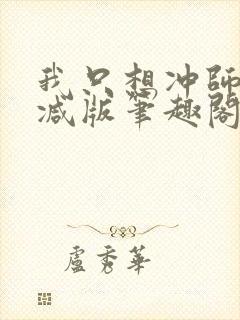 我只想冲师
减版笔趣阁
卢秀华